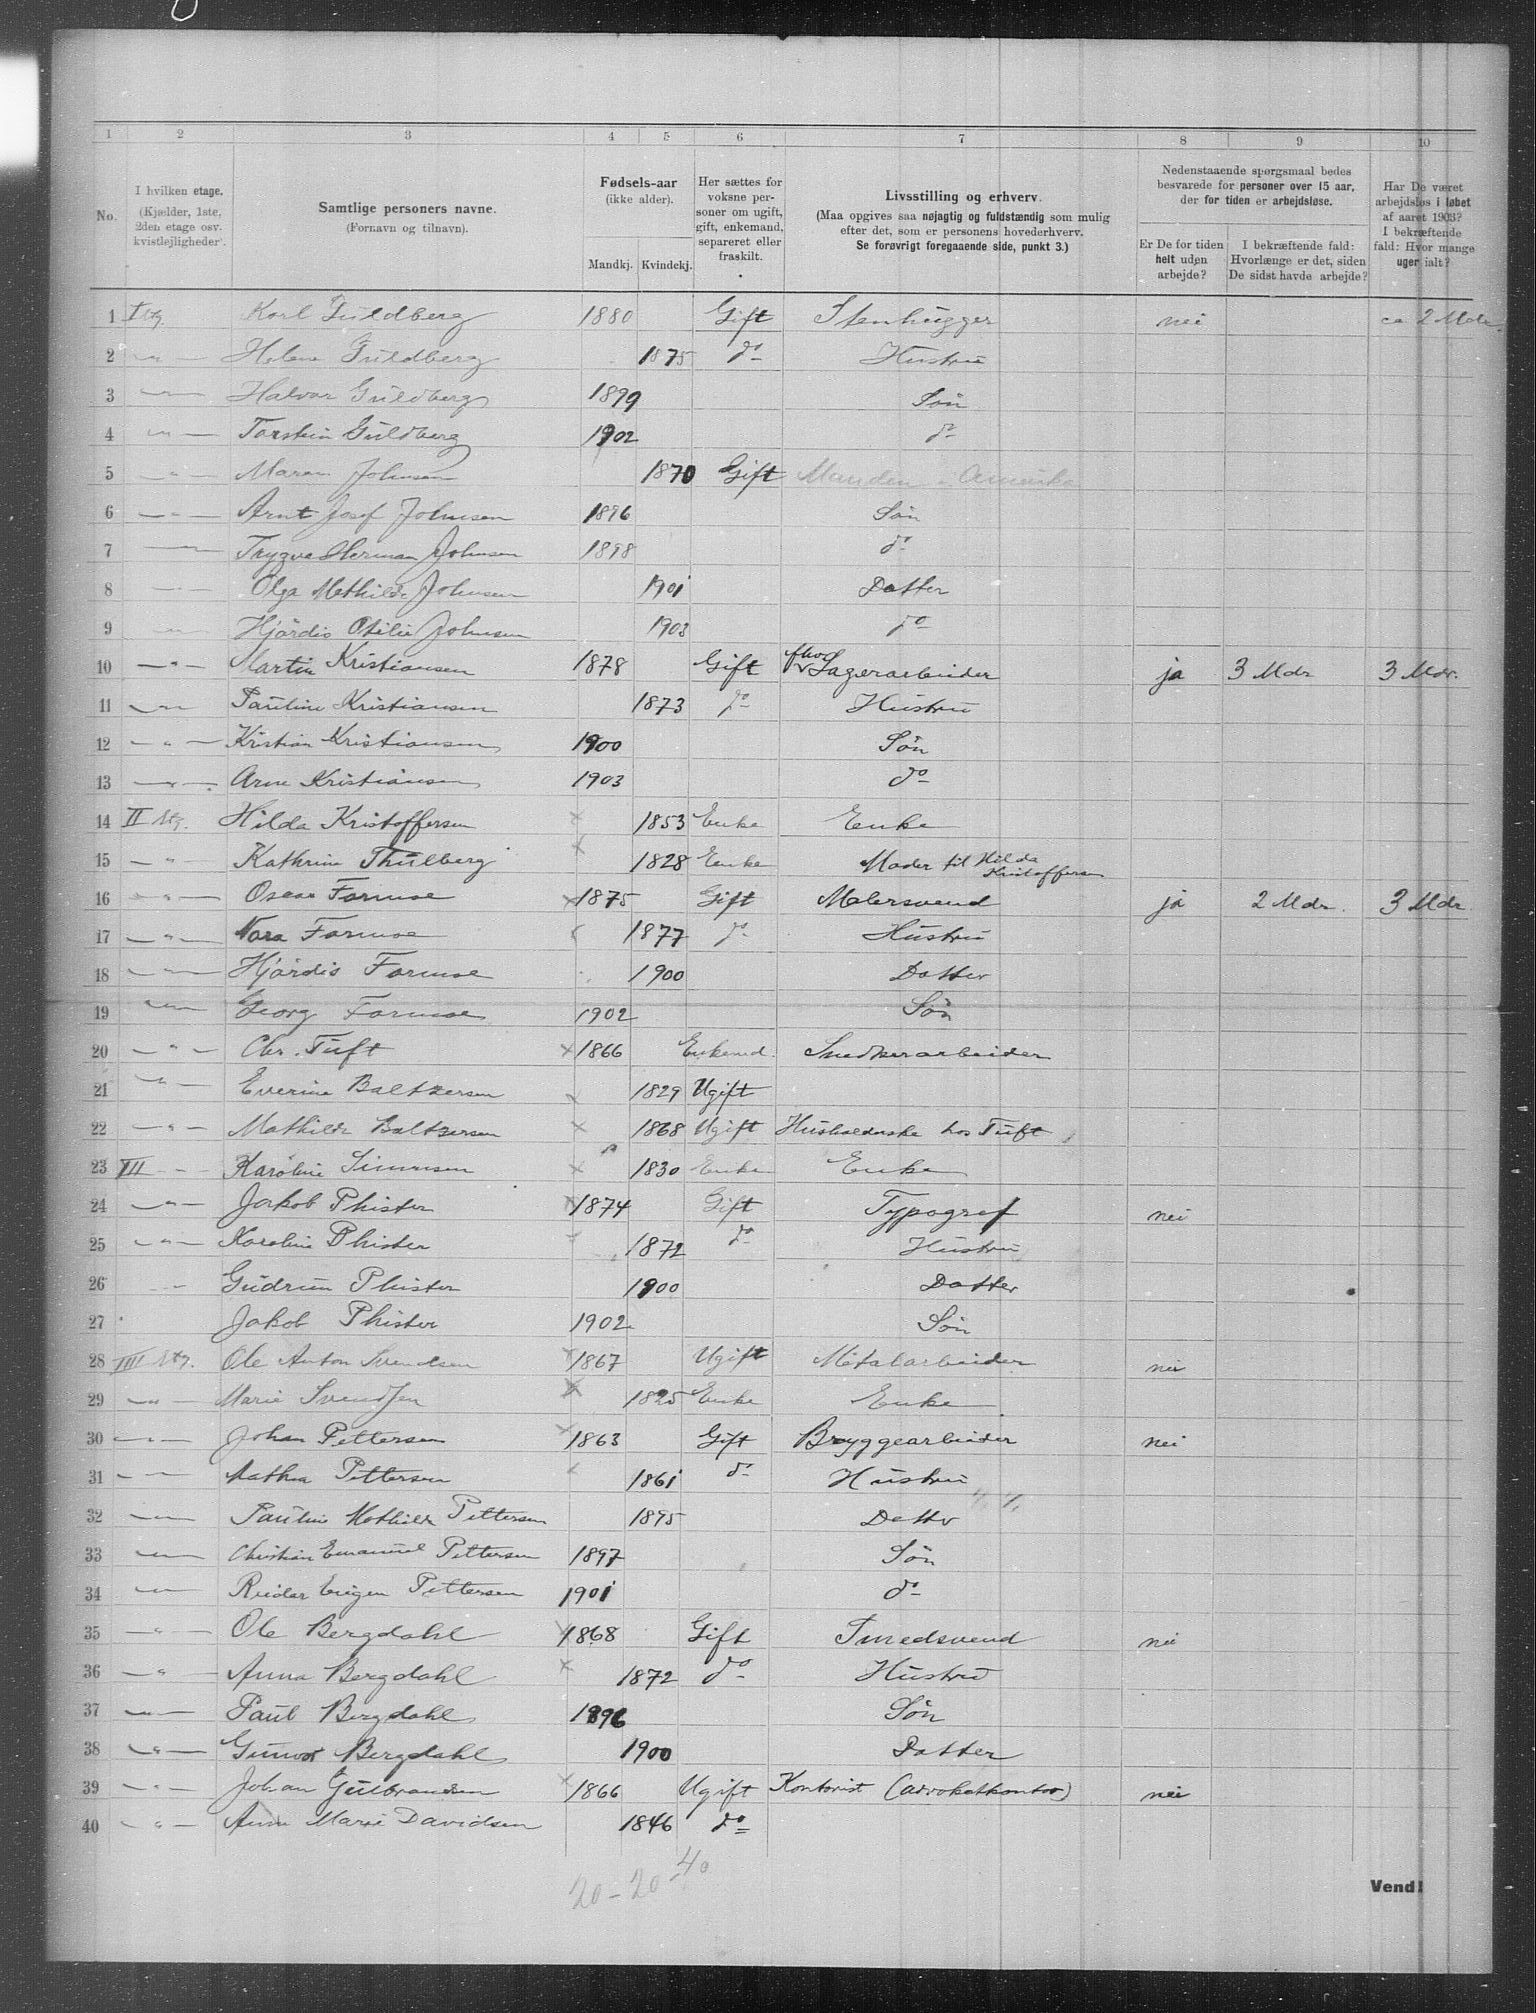 1 2 3 4 5 6 7 8 9 10
No.
I hvilken etage.
(Kjælder, 1ste, 2den etage osv. kvistlejligheder).
Samtlige personers navne.
(Fornavn og tilnavn).
Fødsels-aar
(ikke alder).
Mandkj. Kvindekj.
Her sættes for voksne personer om ugift, gift, enkemand, separeret eller fraskilt.
Livsstilling og erhverv.
(Maa opgives saa nøjagtig og fuldstændig som mulig efter det, som er personens hovederhverv.
Se forøvrigt foregaaende side, punkt 3.)
Nedenstaaende spørgsmaal bedes besvarede for personer over 15 aar, der for tiden er arbejdsløse.
Er De for tiden helt uden arbejde?
I bekræftende fald: Hvorlænge er det, siden De sidst havde arbejde?
Har De været arbejdsløs i løbet af aaret 1903? I bekræftende fald: Hvor mange uger ialt?
1 I Etg. Karl Guldberg 1880 Gift Stenhugger nei ca 2 Mdr.
2 — " — Helene Guldberg 1875 do Hustru
3 — " — Halvar Guldberg 1899 Søn
4 — " — Torstein Guldberg 1902 do
5 — " — Maren Johnsen 1870 Gift Manden i Amerika
6 — " — Arnt Josef Johnsen 1896 Søn
7 — " — Trygve Herman Johnsen 1898 do
8 — " — Olga Mathilde Johnsen 1901 Datter
9 — " — Hjørdis Otilie Johnsen 1903 do
10 — " — Martin Kristiansen 1878 Gift Lagerarbeider ja 3 Mdr 3 Mdr.
11 — " — Pauline Kristiansen 1873 do Hustru
12 — " — Kristian Kristiansen 1900 Søn
13 — " — Arne Kristiansen 1903 do
14 II Etg. Hilda Kristoffersen × 1853 Enke Enke
15 — " — Kathrine Thulberg × 1828 Enke Moder til Hilda Kristoffersen
16 — " — Oscar Formoe × 1875 Gift Malersvend ja 2 Mdr 3 Mdr
17 — " — Nora Formoe 1877 do Hustru
18 — " — Hjørdis Formoe 1900 Datter
19 — " — Georg Formoe 1902 Søn
20 — " — Chr. Tuft × 1866 Enkemd. Snedkerarbeider
21 — " — Everine Baltzersen × 1829 Ugift
22 — " — Mathilde Baltzersen × 1868 Ugift Husholderske hos Tuft
23 III — " — Karoline Simensen × 1830 Enke Enke
24 — " — Jakob Phister × 1874 Gift Typograf nei
25 — " — Karoline Phister 1872 do Hustru
26 — " — Gudrun Phister 1900 Datter
27 Jakob Phister 1902 Søn
28 IIII Etg. Ole Anton Svendsen × 1867 Ugift Metalarbeider nei
29 — " — Marie Svendsen × 1825 Enke Enke
30 — " — Johan Pettersen × 1863 Gift Bryggearbeider nei
31 — " — Mathea Pettersen 1861 do Hustru
32 — " — Pauline Mathilde Pettersen 1895 Datter
33 — " — Christian Emanuel Pettersen 1897 Søn
34 — " — Reidar Eugen Pettersen 1901 do
35 — " — Ole Bergdahl × 1868 Gift Smedsvend nei
36 — " — Anna Bergdahl × 1872 do Hustru
37 — " — Paul Bergdahl 1896 Søn
38 — " — Gunvor Bergdahl 1900 Datter
39 — " — Johan Gulbrandsen × 1866 Ugift Kontorist (advokatkontor) nei
40 — " — Anne Marie Davidsen 1846 do
20 - 20 - 40
Vend!